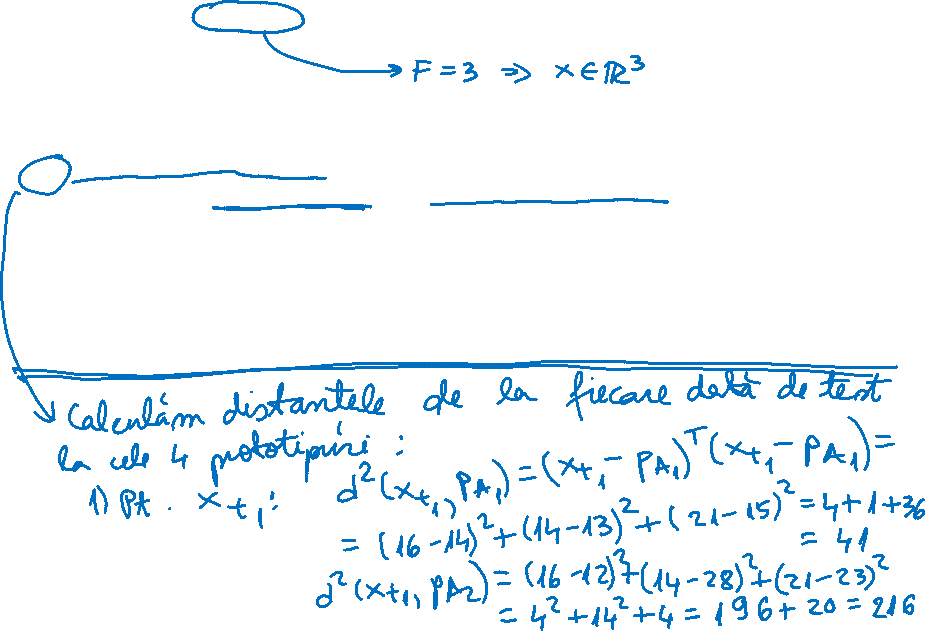 F = 3 ⇒ x ∈ ℝ³
Calculăm distantele de la fiecare dată de test
la cele 4 prototipuri :
1) Pt. x_t₁ : d²(x_t₁, p_A₁) = (x_t₁ - p_A₁)ᵀ (x_t₁ - p_A₁) =
= (16 - 14)² + (14 - 13)² + (21 - 15)² = 4 + 1 + 36
= 41
d²(x_t₁, p_A₂) = (16 - 12)² + (14 - 28)² + (21 - 23)²
= 4² + 14² + 4 = 196 + 20 = 216